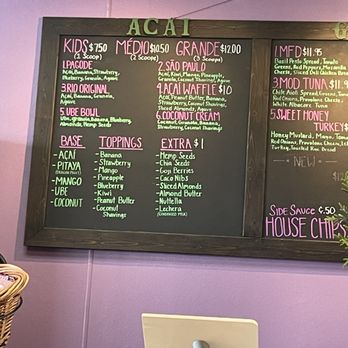 AÇAÍ
KIDS $7.50 MÉDIO $10.50 GRANDE $12.00
(1 SCOOP) (2 SCOOPS) (3 SCOOPS)
1.PAGODE
AÇAÍ, BANANA, STRAWBERRY,
BLUEBERRY, GRANOLA, AGAVE
3.RIO ORIGINAL
AÇAÍ, BANANA, GRANOLA,
AGAVE
5.UBE BOWL
UBE, GRANOLA, BANANA, BLUEBERRY,
ALMONDS, HEMP SEEDS
2.SÃO PAULO
AÇAÍ, KIWI, MANGO, PINEAPPLE,
GRANOLA, COCONUT SHAVINGS, AGAVE
4.AÇAÍ WAFFLE $10
AÇAÍ, PEANUT BUTTER, BANANA,
STRAWBERRY, COCONUT SHAVINGS,
SLICED ALMONDS, AGAVE
6.COCONUT CREAM
COCONUT, GRANOLA, BANANA,
STRAWBERRY, COCONUT SHAVINGS
BASE
- AÇAÍ
- PITAYA
(DRAGON FRUIT)
- MANGO
- UBE
- COCONUT
TOPPINGS
- BANANA
- STRAWBERRY
- MANGO
- PINEAPPLE
- BLUEBERRY
- KIWI
- PEANUT BUTTER
- COCONUT
SHAVINGS
EXTRA $1
- HEMP SEEDS
- CHIA SEEDS
- GOJI BERRIES
- CACO NIBS
- SLICED ALMONDS
- ALMOND BUTTER
- NUTTELLA
- LECHERA
(CONDENSED MILK)
1.MFD $11.95
BASIL AIOLI SPREAD, TOMATO
GREENS, RED PEPPERS, MOZZARELLA
CHEESE, SLICED DELI CHICKEN
3.MOD TUNA $11
CHILI AIOLI SPREAD,
RED ONIONS, PROVOLONE
WHITE ALBACORE TUNA
5.SWEET HONEY
TURKEY $
HONEY MUSTARD, MAYO,
RED ONIONS, PROVOLONE
TURKEY, TOASTED
NEW
SIDE SAUCE ¢.50
HOUSE CHIPS